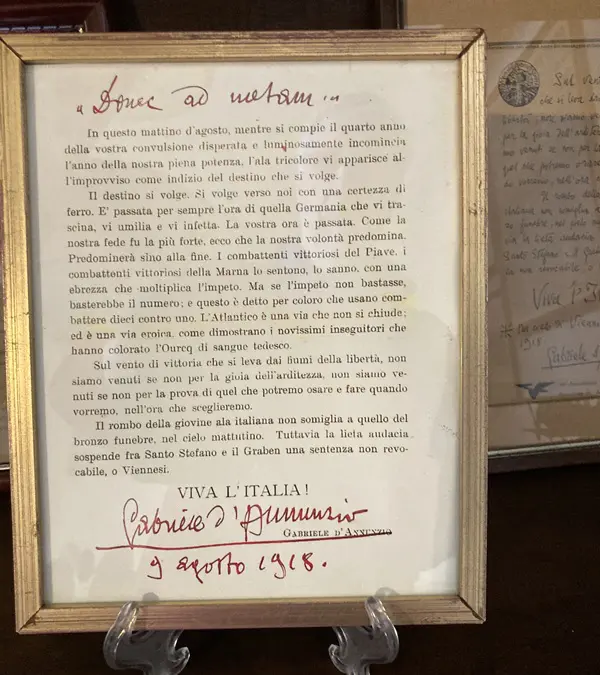 „Donec ad metam...
In questo mattino d'agosto, mentre si compie il quarto anno
della vostra convulsione disperata e luminosamente incomincia
l'anno della nostra piena potenza, l'ala tricolore vi apparisce al-
l'improvviso come indizio del destino che si volge.
Il destino si volge. Si volge verso noi con una certezza di
ferro. E' passata per sempre l'ora di quella Germania che vi tra-
scina, vi umilia e vi infetta. La vostra ora è passata. Come la
nostra fede fu la più forte, ecco che la nostra volontà predomina.
Predominerà sino alla fine. I combattenti vittoriosi del Piave, i
combattenti vittoriosi della Marna lo sentono, lo sanno, con una
ebrezza che moltiplica l'impeto. Ma se l'impeto non bastasse,
basterebbe il numero; e questo è detto per coloro che usano com-
battere dieci contro uno. L'Atlantico è una via che non si chiude;
ed è una via eroica, come dimostrano i novissimi inseguitori che
hanno colorato l'Ourcq di sangue tedesco.
Sul vento di vittoria che si leva dai fiumi della libertà, non
siamo venuti se non per la gioia dell'arditezza, non siamo ve-
nuti se non per la prova di quel che potremo osare e fare quando
vorremo, nell'ora che sceglieremo.
Il rombo della giovine ala italiana non somiglia a quello del
bronzo funebre, nel cielo mattutino. Tuttavia la lieta audacia
sospende fra Santo Stefano e il Graben una sentenza non revo-
cabile, o Viennesi.
VIVA L'ITALIA!
Gabriele d'Annunzio
GABRIELE D'ANNUNZIO
9 agosto 1918.
Sul vento
che si leva
Viva l'I
1918
Gabriele d'